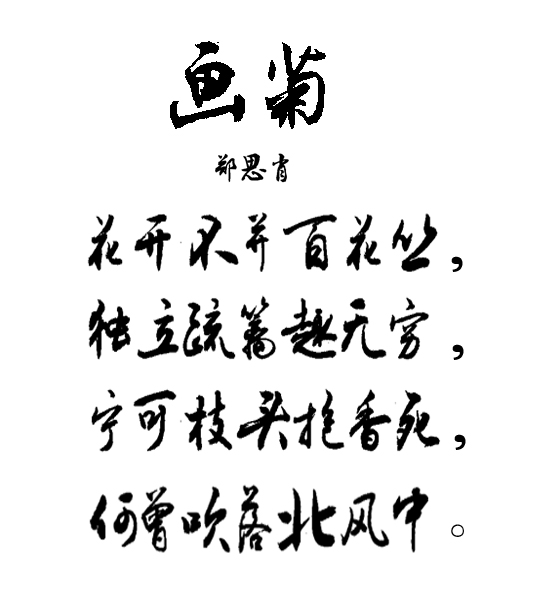 画菊
郑思肖
花开不并百花丛，
独立疏篱趣无穷，
宁可枝头抱香死，
何曾吹落北风中。